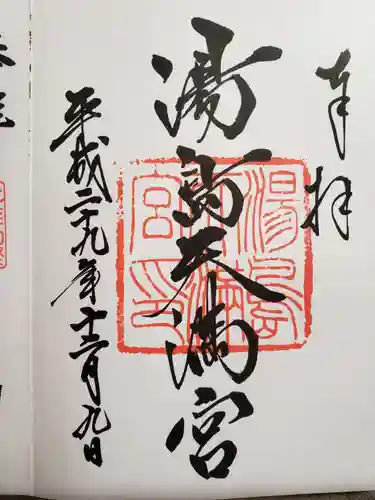 奉拝
湯島天満宮
湯島天満宮印
平成二十九年十二月九日